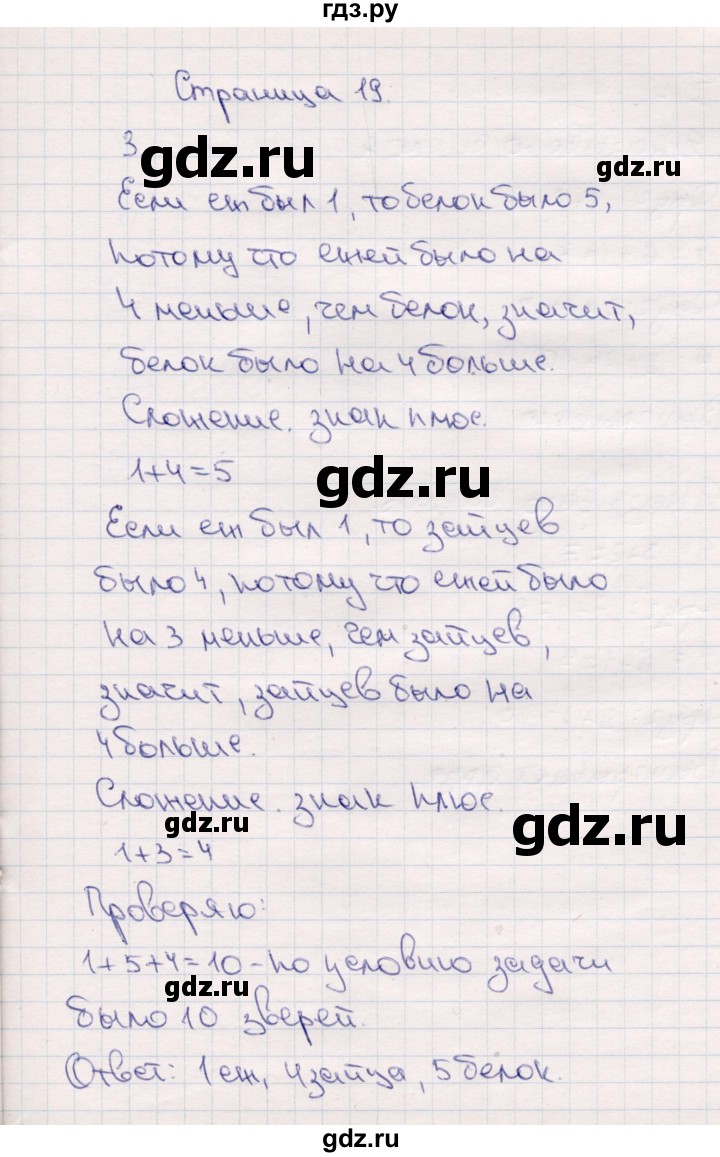 гдз.ру
Страница 19.
3
gdz.ru
gdz.ru
Если еж был 1, то белок было 5,
потому что ежей было на
4 меньше, чем белок, значит,
белок было на 4 больше.
Сложение. знак плюс.
1+4=5
gdz.ru
Если еж был 1, то зайцев
было 4, потому что ежей было
на 3 меньше, чем зайцев,
значит, зайцев было на
4 больше.
Сложение. знак плюс.
gdz.ru
gdz.ru
1+3=4
Проверяю:
1+5+4=10 - по условию задачи
gdz.ru
было 10 зверей.
Ответ: 1 еж, 4 зайца, 5 белок.
gdz.ru